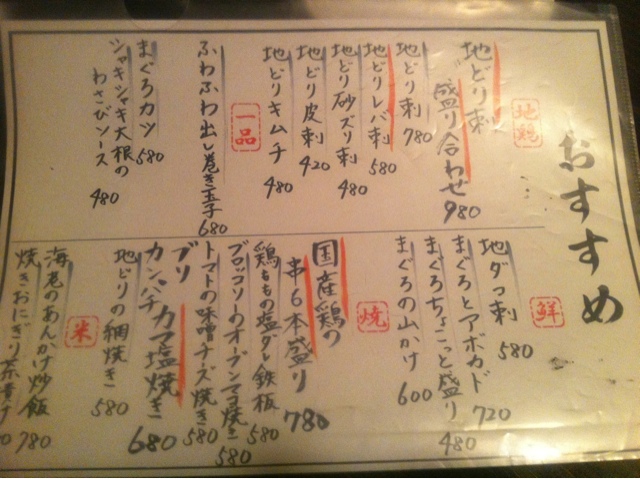 おすすめ
地鶏
地どり刺
盛り合わせ 980
地どり刺 780
地どりレバ刺 580
地どり砂ズリ刺 480
地どり皮刺 420
地どりキムチ 480
一品
ふわふわ出し巻き玉子 680
まぐろカツ 580
シャキシャキ大根の
わさびソース 480
鮮
地ダコ刺 580
まぐろとアボカド 720
まぐろちょこっと盛り 480
まぐろの山かけ 600
焼
国産鶏の
串6本盛り 780
鶏ももの塩ダレ鉄板 580
ブロッコリーのオーブンマヨ焼き 580
トマトの味噌チーズ焼き 580
ブリ
カンパチ カマ塩焼き 680
地どりの網焼き 580
米
海老のあんかけ炒飯 780
焼きおにぎり茶漬け